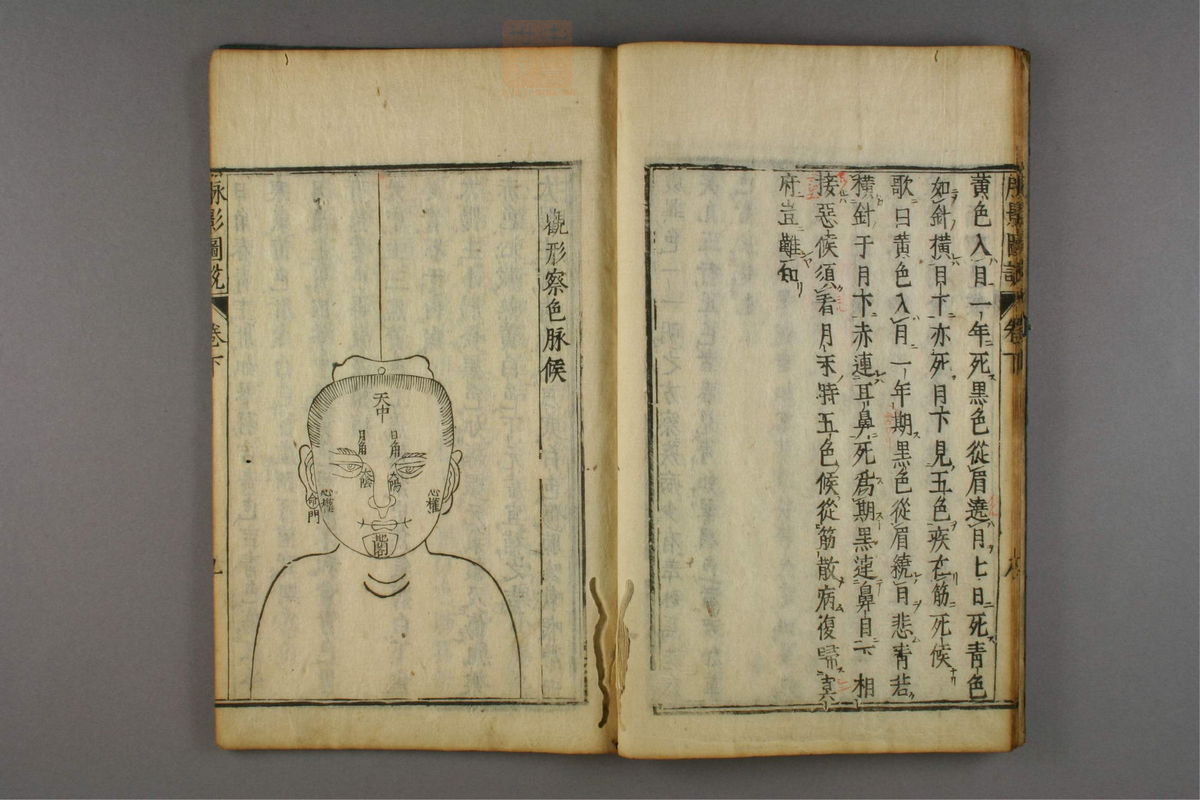 黄色入目一年死黒色從眉遶目七日死青色
如針横目下亦死目下見五色疾在筋死候
歌曰黄色入目一年期黒色從眉繞目悲青若
横針于目下赤連耳鼻死為期黒連鼻目六相
接惡候須看目禾時五色候從筋散病復歸冥
府豈難知
脉影圖説
卷下
觀形察色脉候
天中
日角
日角
太陽
太陰
心權
心權
命門
地閣
脉影圖説
卷下
九